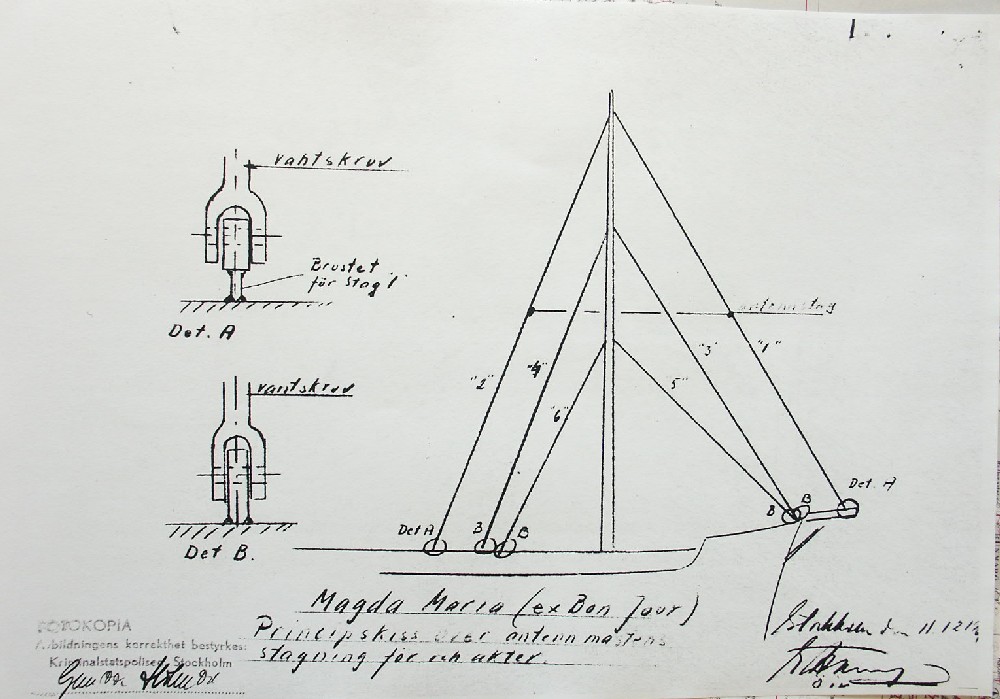 vantskruv
Brustet
för Stag 1
Det. A
vantskruv
Det B.
antennstag
"2"
"4"
"6"
"3"
"1"
5"
Det A
B
B
B
B
Det. A
Magda Maria (ex Bon Jour)
Principskiss över antenn mastens
stagning för och akter.
FOTOKOPIA
Avbildningens korrekthet bestyrkes:
Kriminalstatspolisen, Stockholm
Stockholm den 11.12